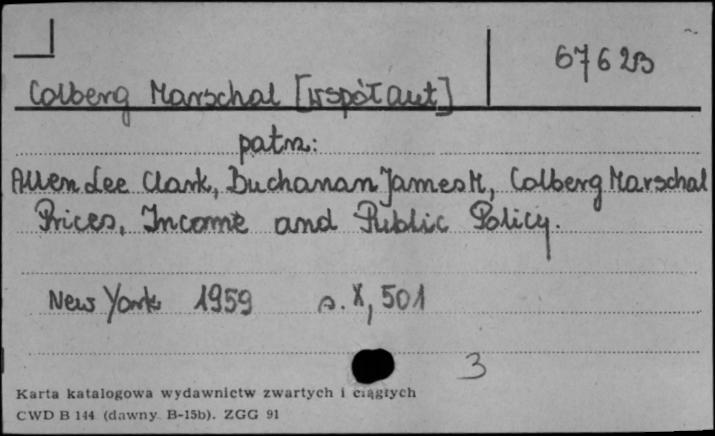 67623
Colberg Marschal [współaut]
patrz:
Allen Lee Clark, Buchanan James M, Colberg Marschal
Prices, Income and Public Policy.
New York 1959 s. X, 501
3
Karta katalogowa wydawnictw zwartych i ciągłych
CWD B 144 (dawny B-15b). ZGG 91